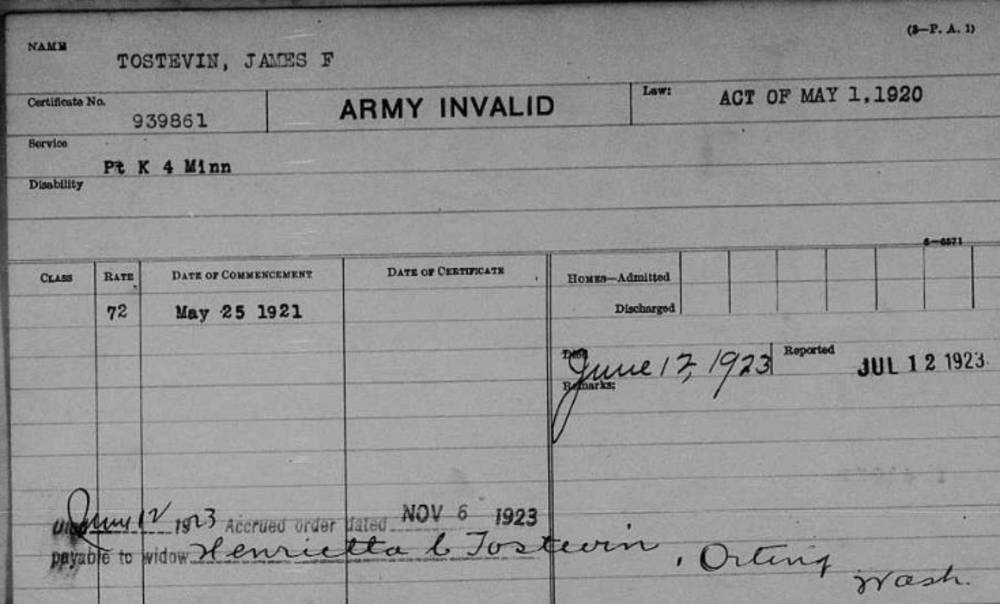 (3—P. A. 1)
NAME
TOSTEVIN, JAMES F
Certificate No.
939861
ARMY INVALID
Law: ACT OF MAY 1,1920
Service
Pt K 4 Minn
Disability
6—6571
CLASS RATE DATE OF COMMENCEMENT DATE OF CERTIFICATE HOMES—Admitted
Discharged
72 May 25 1921
Died June 12, 1923 Reported JUL 12 1923.
Remarks:
Died June 12 1923 Accrued order dated NOV 6 1923
payable to widow Henrietta C Tostevin, Orting
Wash.